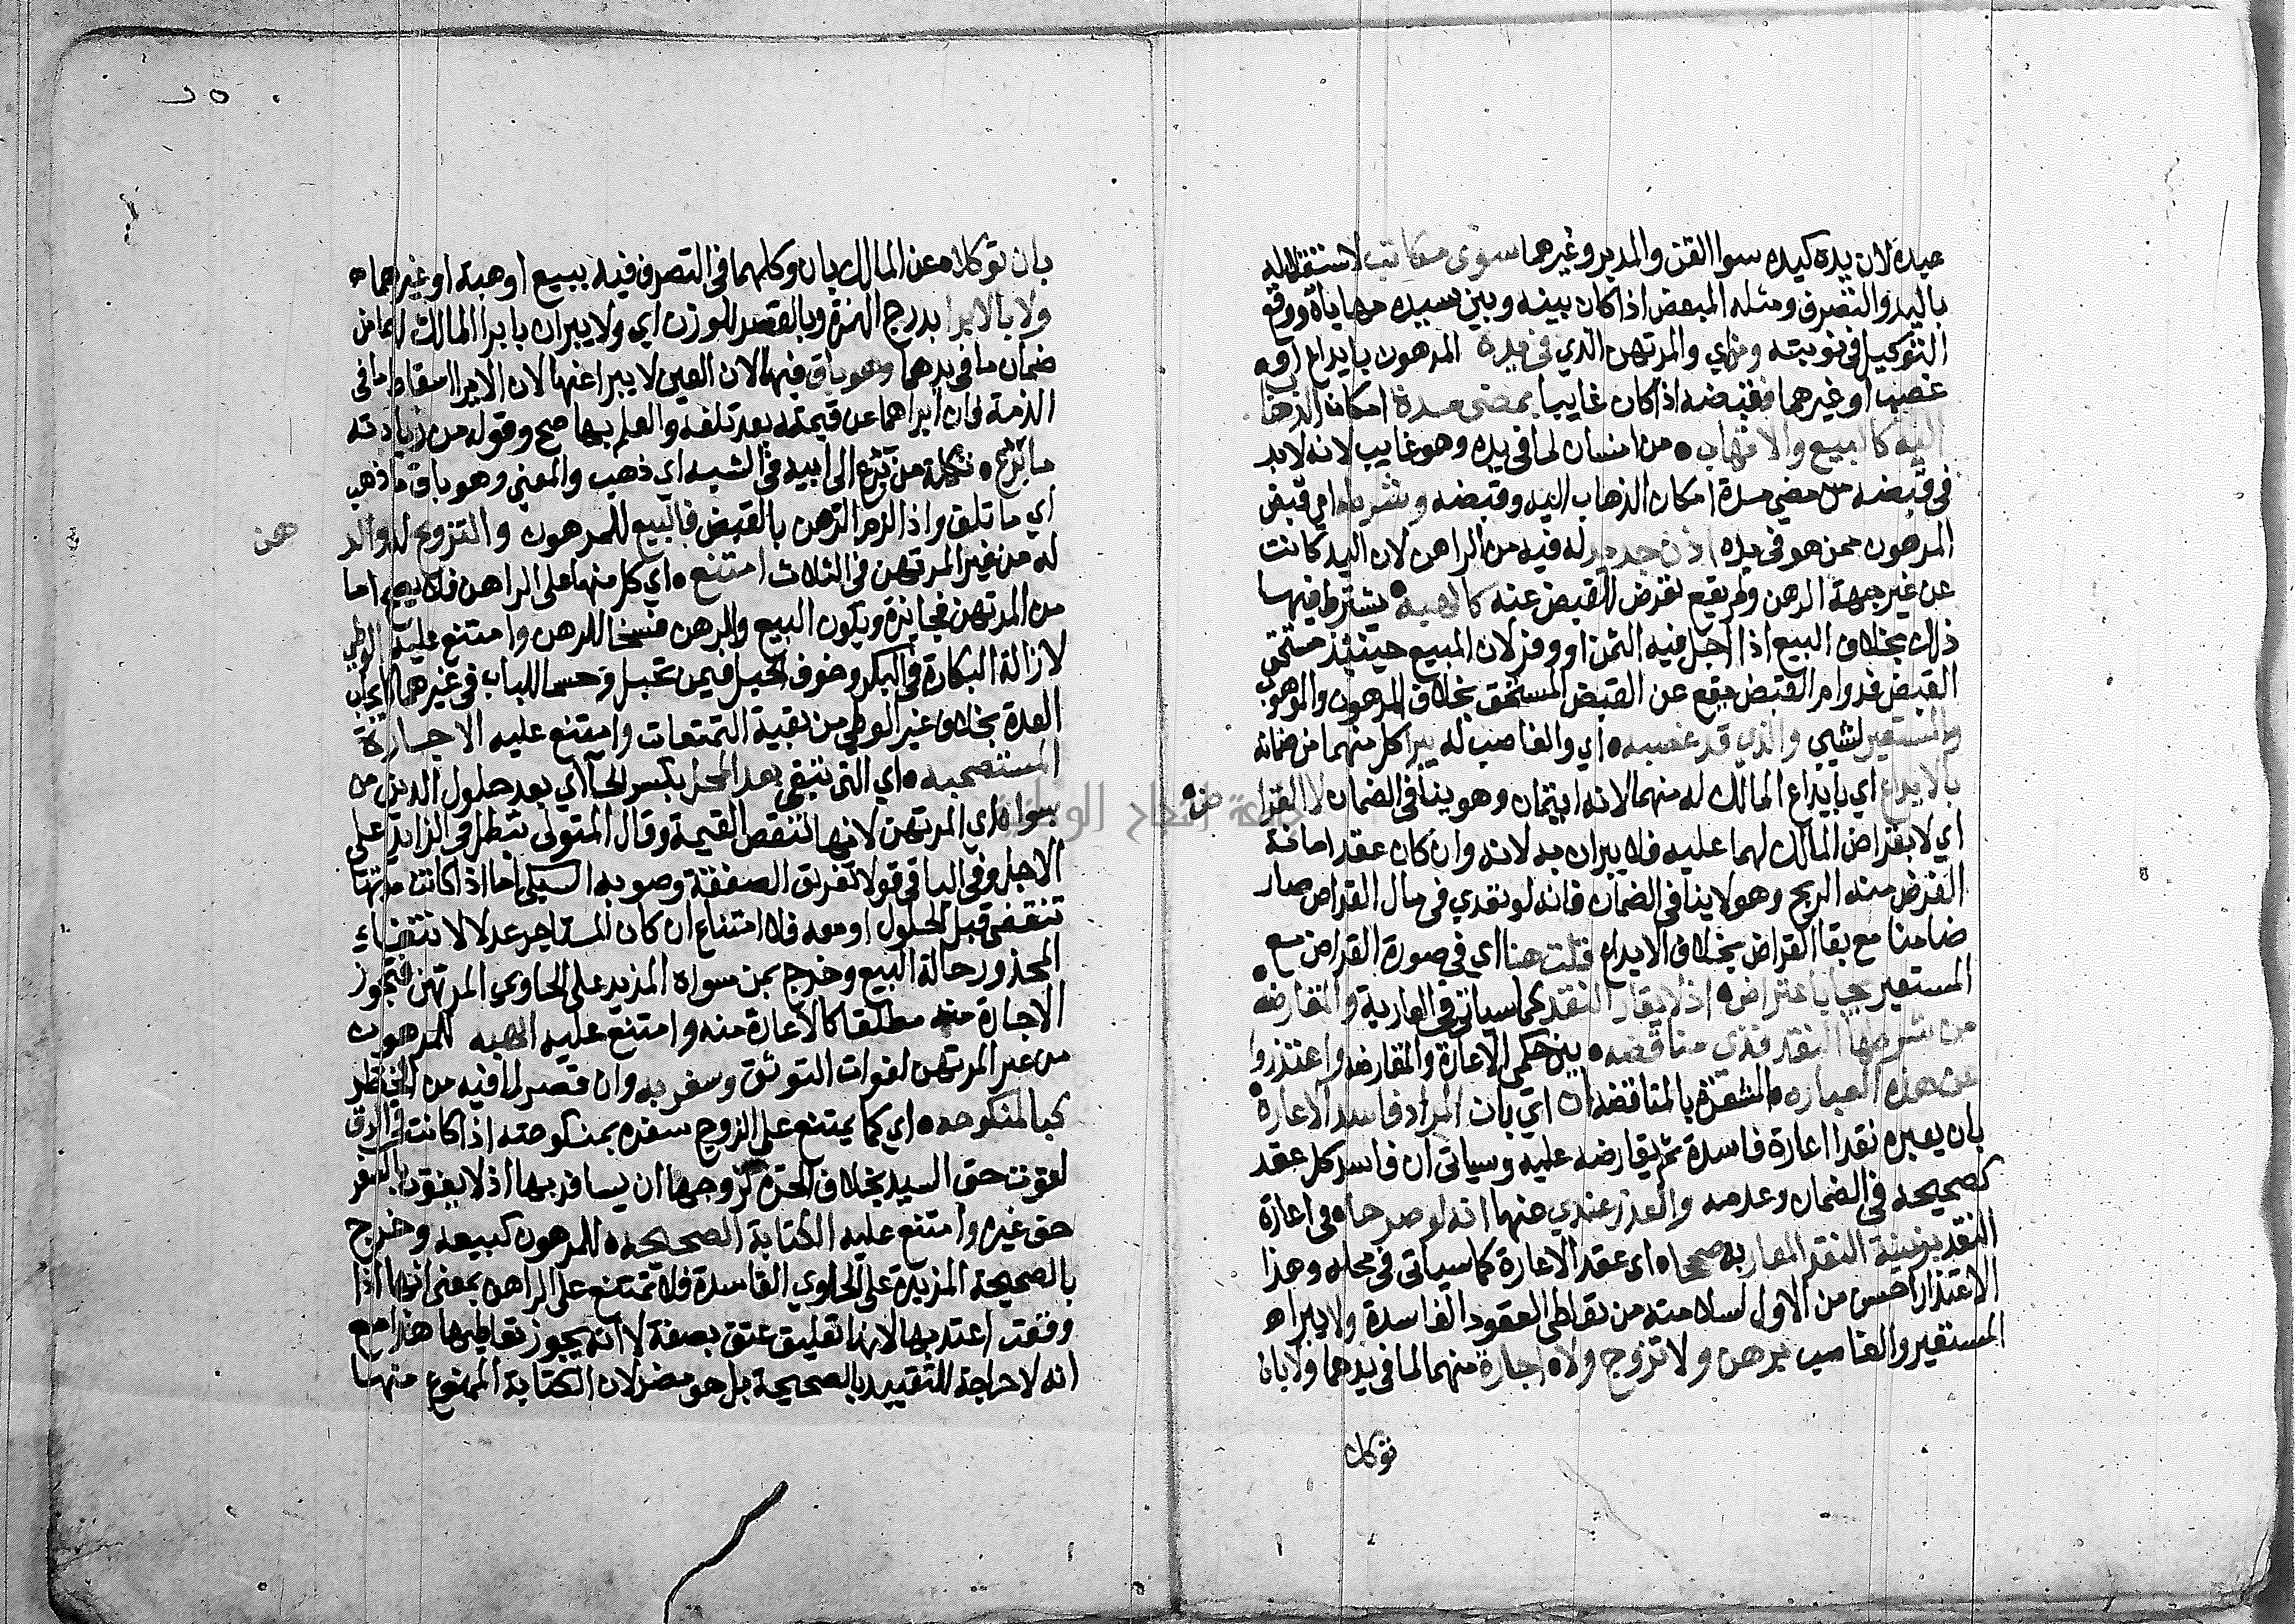 عبده لان يده كيده سوا القن والمدبر وغيرهما سوى مكاتب لاستقلاله
باليد والتصرف ومثله المبعض اذا كان بينه وبين سيده مهاياة ووقع
التوكيل في نوبته وفي والمرتهن الذي في يده المرهون بايداع او
غصب او غيرهما فقبضه اذا كان غايبا بمضي مدة امكان الذهاب
اليه كالبيع والاتهاب من انسان لما في يده وهو غايب لانه لابد
في قبضه من مضي مدة امكان الذهاب اليه وقبضه وشرط في قبض
المرهون ممن هو في يده اذن جديد له فيه من الراهن لان اليد كانت
عن غير جهة الرهن ولم يقع تعرض للقبض عنه كالهبة يشترط فيها
ذلك بخلاف البيع اذا اجل فيه الثمن او وفر لان المبيع حينئذ مستحق
القبض فدوام القبض يقع عن القبض المستحق بخلاف المرهون والموهوب
والمستعير لشيي والذي قد غصبه اي والغاصب له يبرا كل منهما من ضمانه
بالايداع اي بايداع المالك له منهما لانه ايتمان وهو ينافي الضمان لا القراض
اي لا بقراض المالك لهما عليه فلا يبران به لانه وان كان عقد امانة
الغرض منه الربح وهو لا ينافي الضمان فانه لو تعدي في مال القراض صار
ضامنا مع بقا القراض بخلاف الايداع قلت هنا اي في صورة القراض مع
المستعير بجا باعتراض اذ لا يعار النقد كما سياتي في العارية والمقارضه
من شرطها النقد فذي مناقضه بين حكمي الاعارة والمقارضه واعتذروا
عن هذه العباره المشعره بالمناقضه ان اي بان المراد فاسد الاعارة
بان يعيره نقدا اعارة فاسدة ثم يقارضه عليه وسياتي ان فاسد كل عقد
كصحيحه في الضمان وعدمه والعذر عندي عنها انه لو صرحا في اعارة
النقد بزينة النقد المعار به صحا اي عقد الاعارة كما سياتي في محله وهذا
الاعتذار احسن من الاول لسلامته من تعاطي العقود الفاسدة ولا يبراه
المستعير والغاصب برهن ولا تزوج ولا اجارة منهما لما في يدهما ولا بان
توكلا
بان توكلا عن المالك بان وكلهما في التصرف فيه ببيع او هبة او غيرهما
ولا بالابرا بدرج الهمزة وبالقصر للوزن اي ولا يبران بابرا المالك لهما من
ضمان ما في يدهما وهو باق فيها لان العين لا يبرا عنها لان الابرا اسقاط ما في
الذمة فان ابراهما عن قيمته بعد تلفه والعلم بها صح وقوله من زيادته
ما نزع تكملة من نزع الى ابيه في الشبه اي ذهب والمعني وهو باق ما ذهب
اي ما تلف واذا لزم الرهن بالقبض فالبيع للمرهون والتزويج له والر
هن
له من غير المرتهن في الثلاث امتنع اي كل منها على الراهن فلا يصح اما
من المرتهن فجائزة ويكون البيع والرهن فسخا للرهن وامتنع عليه الوطي
لازالة البكارة في البكر وخوف الحبل فيمن تحبل وحسما للباب في غيرهما
العدة بخلاف غير الوطي من بقية التمتعات وامتنع عليه الاجارة
المستصحبه اي التي تبقي بعد المحل بكسر الحا اي بعد حلول الدين من
سواه اي المرتهن لانها تنقص القيمة وقال المتولي تبطل في الزايد على
الاجل وفي الباقي قولا تفريق الصفقة وصوبه السبكي اما اذا كانت مدتها
تنقضي قبل الحلول او معه فلا امتناع ان كان المستاجر عدلا لانتفاء
المحذور حالة البيع وخرج بمن سواه المزيد على الحاوي المرتهن فتجوز
الاجارة منه مطلقا كالاعارة منه وامتنع عليه الهبه للمرهون
من غير المرتهن لفوات التوثق وسفر به وان قصر لما فيه من الخطر
كبالمنكوحه اي كما يمتنع على الزوج سفره بمنكوحته اذا كانت في الرق
لفوت حق السيد بخلاف الحرة لزوجها ان يسافر بها اذ لا يفوت بالسفر
حق غيره وامتنع عليه الكتابة الصحيحه للمرهون كبيعه وخرج
بالصحيحة المزيدة على الحاوي الفاسدة فلا تمتنع على الراهن بمعنى انها اذا
وقعت اعتد بها لانها تعليق عتق بصفة لا انه يجوز تعاطيها هذا مع
انه لا حراجة للتقييد بالصحيحة بل هو مضر لان الكتابة الممنوع منها
جامعة النجاح الوطنية